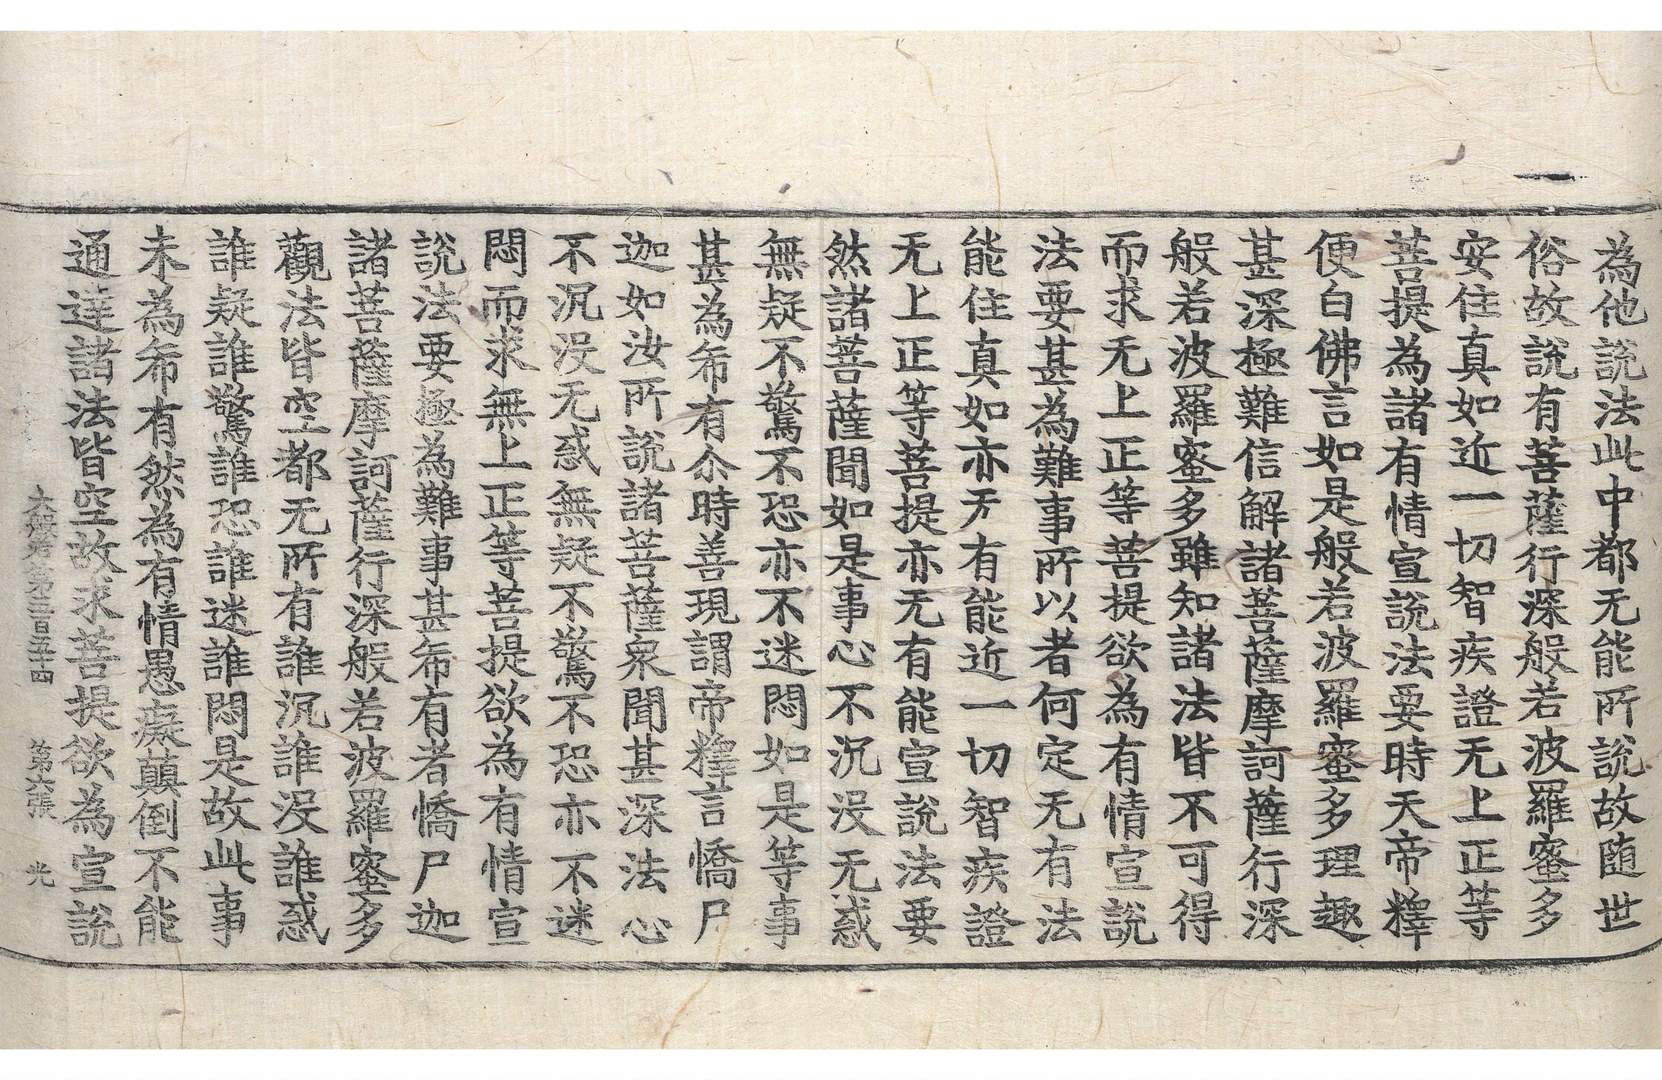 為他說法此中都无能所說故随世
俗故說有菩薩行深般若波羅蜜多
安住真如近一切智疾證无上正等
菩提為諸有情宣說法要時天帝釋
便白佛言如是般若波羅蜜多理趣
甚深極難信解諸菩薩摩訶薩行深
般若波羅蜜多雖知諸法皆不可得
而求无上正等菩提欲為有情宣說
法要甚為難事所以者何定无有法
能住真如亦无有能近一切智疾證
无上正等菩提亦无有能宣說法要
然諸菩薩聞如是事心不沉没无惑
無疑不驚不恐亦不迷悶如是等事
甚為希有尒時善現謂帝釋言憍尸
迦如汝所說諸菩薩衆聞甚深法心
不沉没无惑無疑不驚不恐亦不迷
悶而求無上正等菩提欲為有情宣
說法要極為難事甚希有者憍尸迦
諸菩薩摩訶薩行深般若波羅蜜多
觀法皆空都无所有誰沉誰没誰惑
誰疑誰驚誰恐誰迷誰悶是故此事
未為希有然為有情愚癡顛倒不能
通達諸法皆空故求菩提欲為宣說
大般若第三百五十四 第六張 光